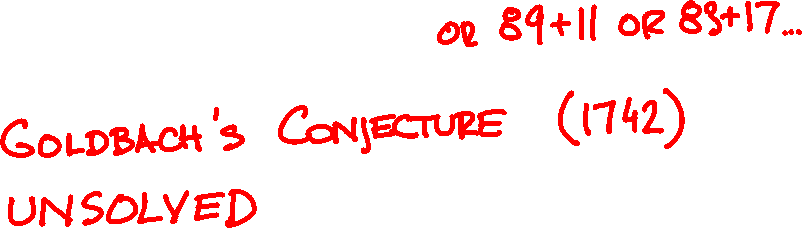 OR 89+11 OR 83+17...
GOLDBACH'S CONJECTURE (1742)
UNSOLVED